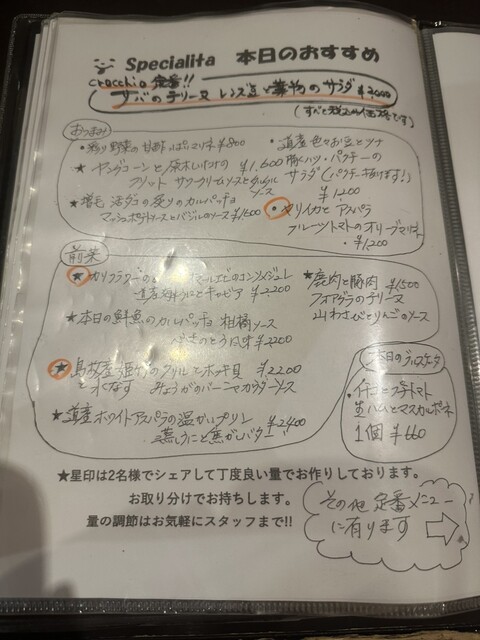 Specialita 本日のおすすめ
crocchio 定番!!
サバのテリーヌ レンズ豆と穀物のサラダ ¥2,000
(すべて税込価格です)
おつまみ
・彩り野菜の甘酢っぱいマリネ ¥800
★ ヤングコーンと原木しいたけの ¥1,600
フリット サワークリームソースと
ソース
★ 増毛 活ダコの炙りのカルパッチョ
マッシュポテトソースとバジルのソース ¥1,600
・道産色々お豆とツナ
豚ハツ・パクチーの
サラダ(パクチー抜けます!)
¥1200
・ヤリイカとアスパラ
フルーツトマトのオリーブマリネ
・¥1,200
前菜
★ カリフラワーの オマールエビのコンソメジュレ
道産 うにとキャビア ¥2,200
★ 本日の鮮魚のカルパッチョ 柑橘ソース
¥2200
★ 島牧産 のグリルとホッキ貝 ¥2200
と水なす みょうがのバーニャカウダーソース
★ 道産ホワイトアスパラの温かいプリン ¥2,400
蒸しうにと焦がしバター
★ 鹿肉と豚肉 ¥1500
フォアグラのテリーヌ
山わさびとりんごのソース
本日のブルスケッタ
・イチゴとプチトマト
生ハムとマスカルポーネ
1個 ¥660
★星印は2名様でシェアして丁度良い量でお作りしております。
お取り分けでお持ちします。
量の調節はお気軽にスタッフまで!!
その他 定番メニュー
に有ります